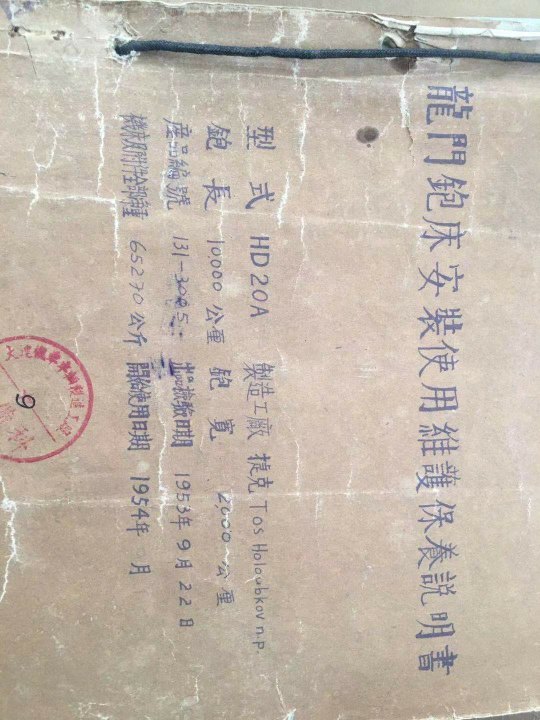 龍門鉋床安裝使用維護保養説明書
型式 HD20A 製造工廠 捷克 Tos Holoubkov n.p.
鉋長 10,000公厘 鉋寬 2,000公厘
產品編號 131-3005 出品檢驗日期 1953年9月22日
機床及附件全部重 65270公斤 開始使用日期 1954年 月
9